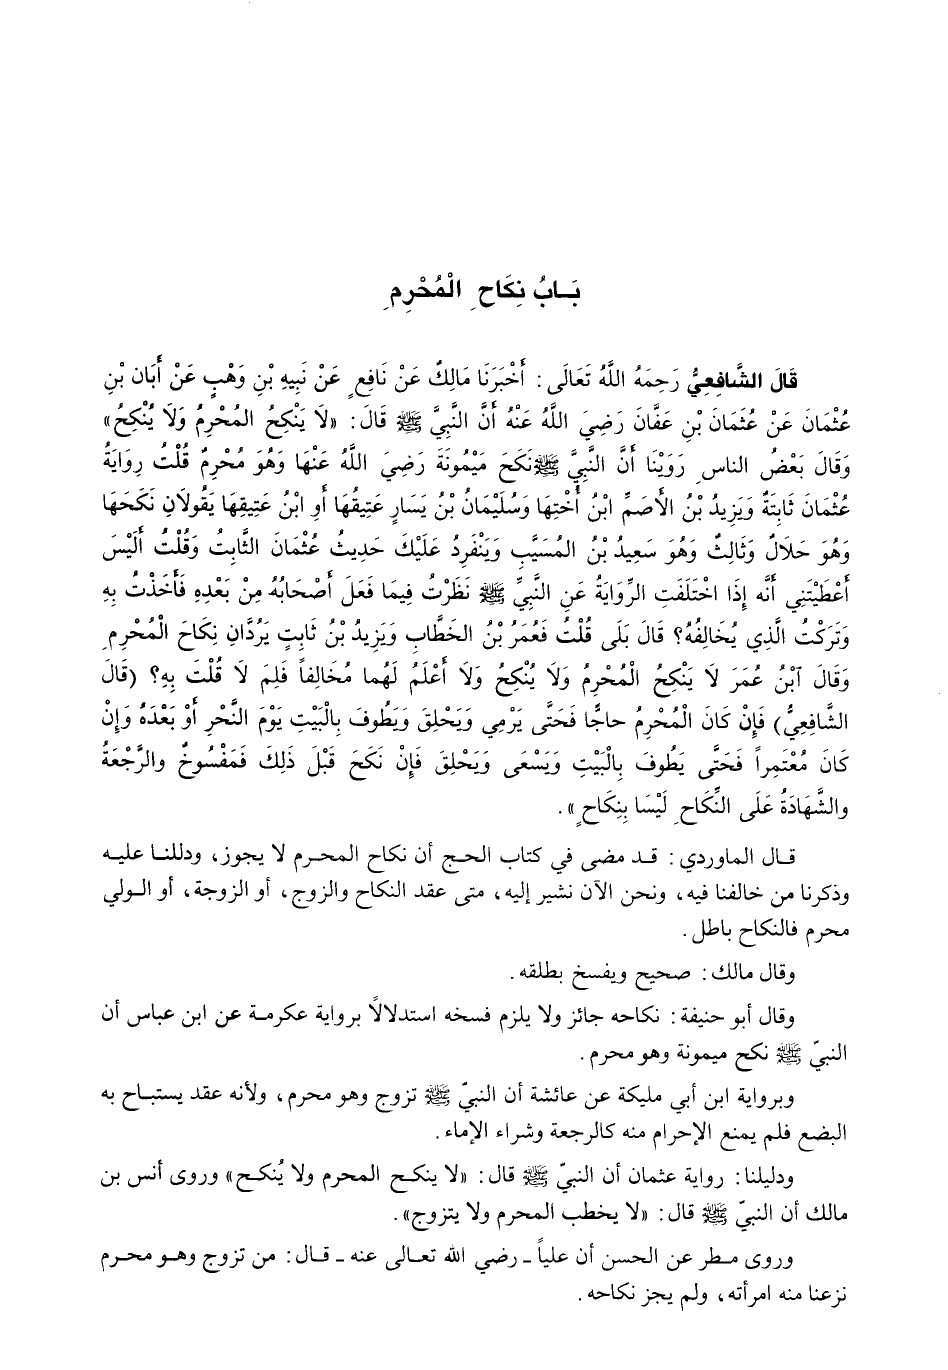 بَـابُ نِكَاحِ الْمُحْرِمِ
قَالَ الشَّافِعِيُّ رَحِمَهُ اللَّهُ تَعَالَى: أَخْبَرَنَا مَالِكٌ عَنْ نَافِعٍ عَنْ نَبِيهِ بْنِ وَهْبٍ عَنْ أَبَان بْنِ
عُثْمَانَ عَنْ عُثمَانَ بْنِ عَفَّان رَضِيَ اللَّهُ عَنْهُ أَنَّ النَّبِيَّ ﷺ قَالَ: «لَا يَنْكِحُ المُحْرِمُ وَلَا يُنْكِحُ»
وَقَالَ بَعْضُ الناسِ رَوَيْنَا أَنَّ النَّبِيَّ ﷺنَكَحَ مَيْمُونَةَ رَضِيَ اللَّهُ عَنْهَا وَهُوَ مُحْرِمٌ قُلْتُ رِوَايَةُ
عُثْمَانَ ثَابِتَةٌ وَيَزِيدُ بْنُ الأَصَمِّ ابْنُ أُخْتِهَا وَسُلَيْمَانُ بْنُ يَسَارٍ عَتِيقُهَا أَوِ ابْنُ عَتِيقِهَا يَقُولَانِ نَكَحَهَا
وَهُوَ حَلَالٌ وَثَالِثٌ وَهُوَ سَعِيدُ بْنُ المُسَيَّبِ وَيَنْفَرِدُ عَلَيْكَ حَدِيثُ عُثْمَانَ الثَّابِتُ وَقُلْتُ أَلَيْسَ
أَعْطَيْتَنِي أَنَّه إِذَا اخْتَلَفَتِ الرِّوَايَةُ عَنِ النَّبِيِّ ﷺ نَظَرْتُ فِيمَا فَعَلَ أَصْحَابُهُ مِنْ بَعْدِهِ فَأَخَذْتُ بِهِ
وَتَرَكْتُ الَّذِي يُخَالِفُهُ؟ قَالَ بَلَى قُلْتُ فَعُمَرُ بْنُ الخَطَّابِ وَيَزِيدُ بْنُ ثَابِتٍ يَرُدَّانِ نِكَاحَ الْمُحْرِمِ
وَقَالَ آبْنُ عُمَرَ لَا يَنْكِحُ الْمُحْرِمُ وَلَا يُنْكِحُ وَلَا أَعْلَمُ لَهُما مُخَالِفاً فَلِمَ لَا قُلْتَ بِهِ؟ (قَالَ
الشَّافِعِيُّ) فَإِنْ كَانَ الْمُحْرِمُ حاجًّا فَحَتَّى يَرْمِي وَيَحْلِقَ وَيَطُوفَ بِالْبَيْتِ يَوْمَ النَّحْرِ أَوْ بَعْدَهُ وَإِنْ
كَانَ مُعْتَمِراً فَحَتَّى يَطُوفَ بِالْبَيْتِ وَيَسْعَى وَيَحْلِقَ فَإِنْ نَكَحَ قَبْلَ ذَلِكَ فَمَفْسُوخٌ والرَّجْعَةُ
والشَّهَادَةُ عَلَى النِّكَاحِ لَيْسَا بِنِكَاحٍ».
قـال الماوردي: قـد مضى في كتاب الحـج أن نكاح المحـرم لا يجوز، ودللنـا عليـه
وذكرنا من خالفنا فيه، ونحن الآن نشير إليه، متى عقد النكاح والزوج، أو الزوجة، أو الـولي
محرم فالنكاح باطل.
وقال مالك: صحيح ويفسخ بطلقه.
وقال أبو حنيفة: نكاحه جائز ولا يلزم فسخه استدلالاً برواية عكرمـة عن ابن عباس أن
النبيّ ﷺ نكح ميمونة وهو محرم.
وبرواية ابن أبي مليكة عن عائشة أن النبيّ ﷺ تزوج وهو محرم، ولأنه عقد يستبـاح به
البضع فلم يمنع الإحرام منه كالرجعة وشراء الإماء.
ودليلنا: رواية عثمان أن النبيّ ﷺ قال: «لا ينكـح المحرم ولا يُنكـح» وروى أنس بن
مالك أن النبيّ ﷺ قال: «لا يخطب المحرم ولا يتزوج».
وروى مـطر عن الحسن أن عليـاً ـ رضي الله تعـالى عنه ـ قـال: من تزوج وهـو محـرم
نزعنا منه امرأته، ولم يجز نكاحه.